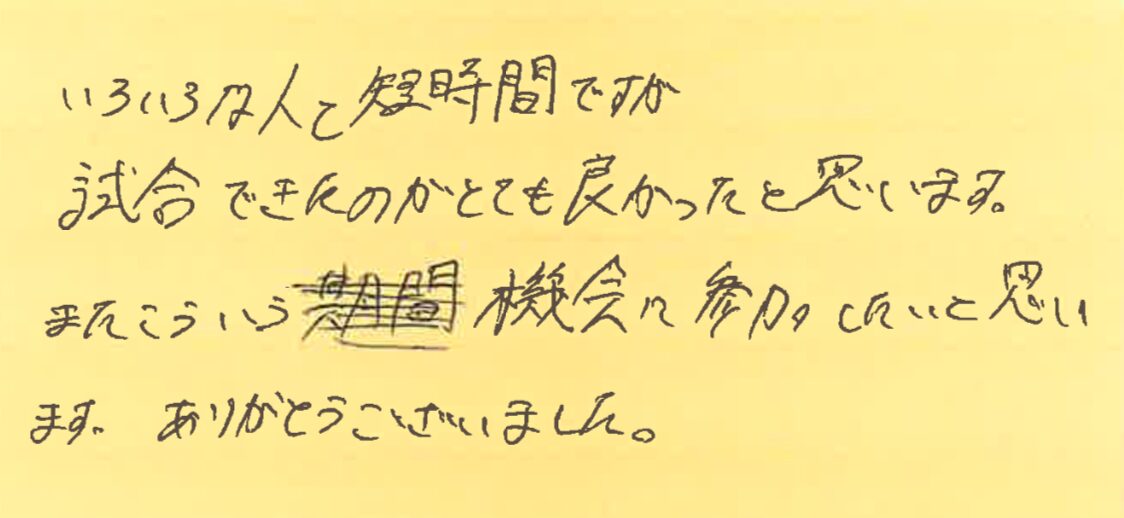 いろいろな人と短時間ですが
試合できたのがとても良かったと思います。
またこういう期間機会に参加したいと思い
ます。ありがとうございました。